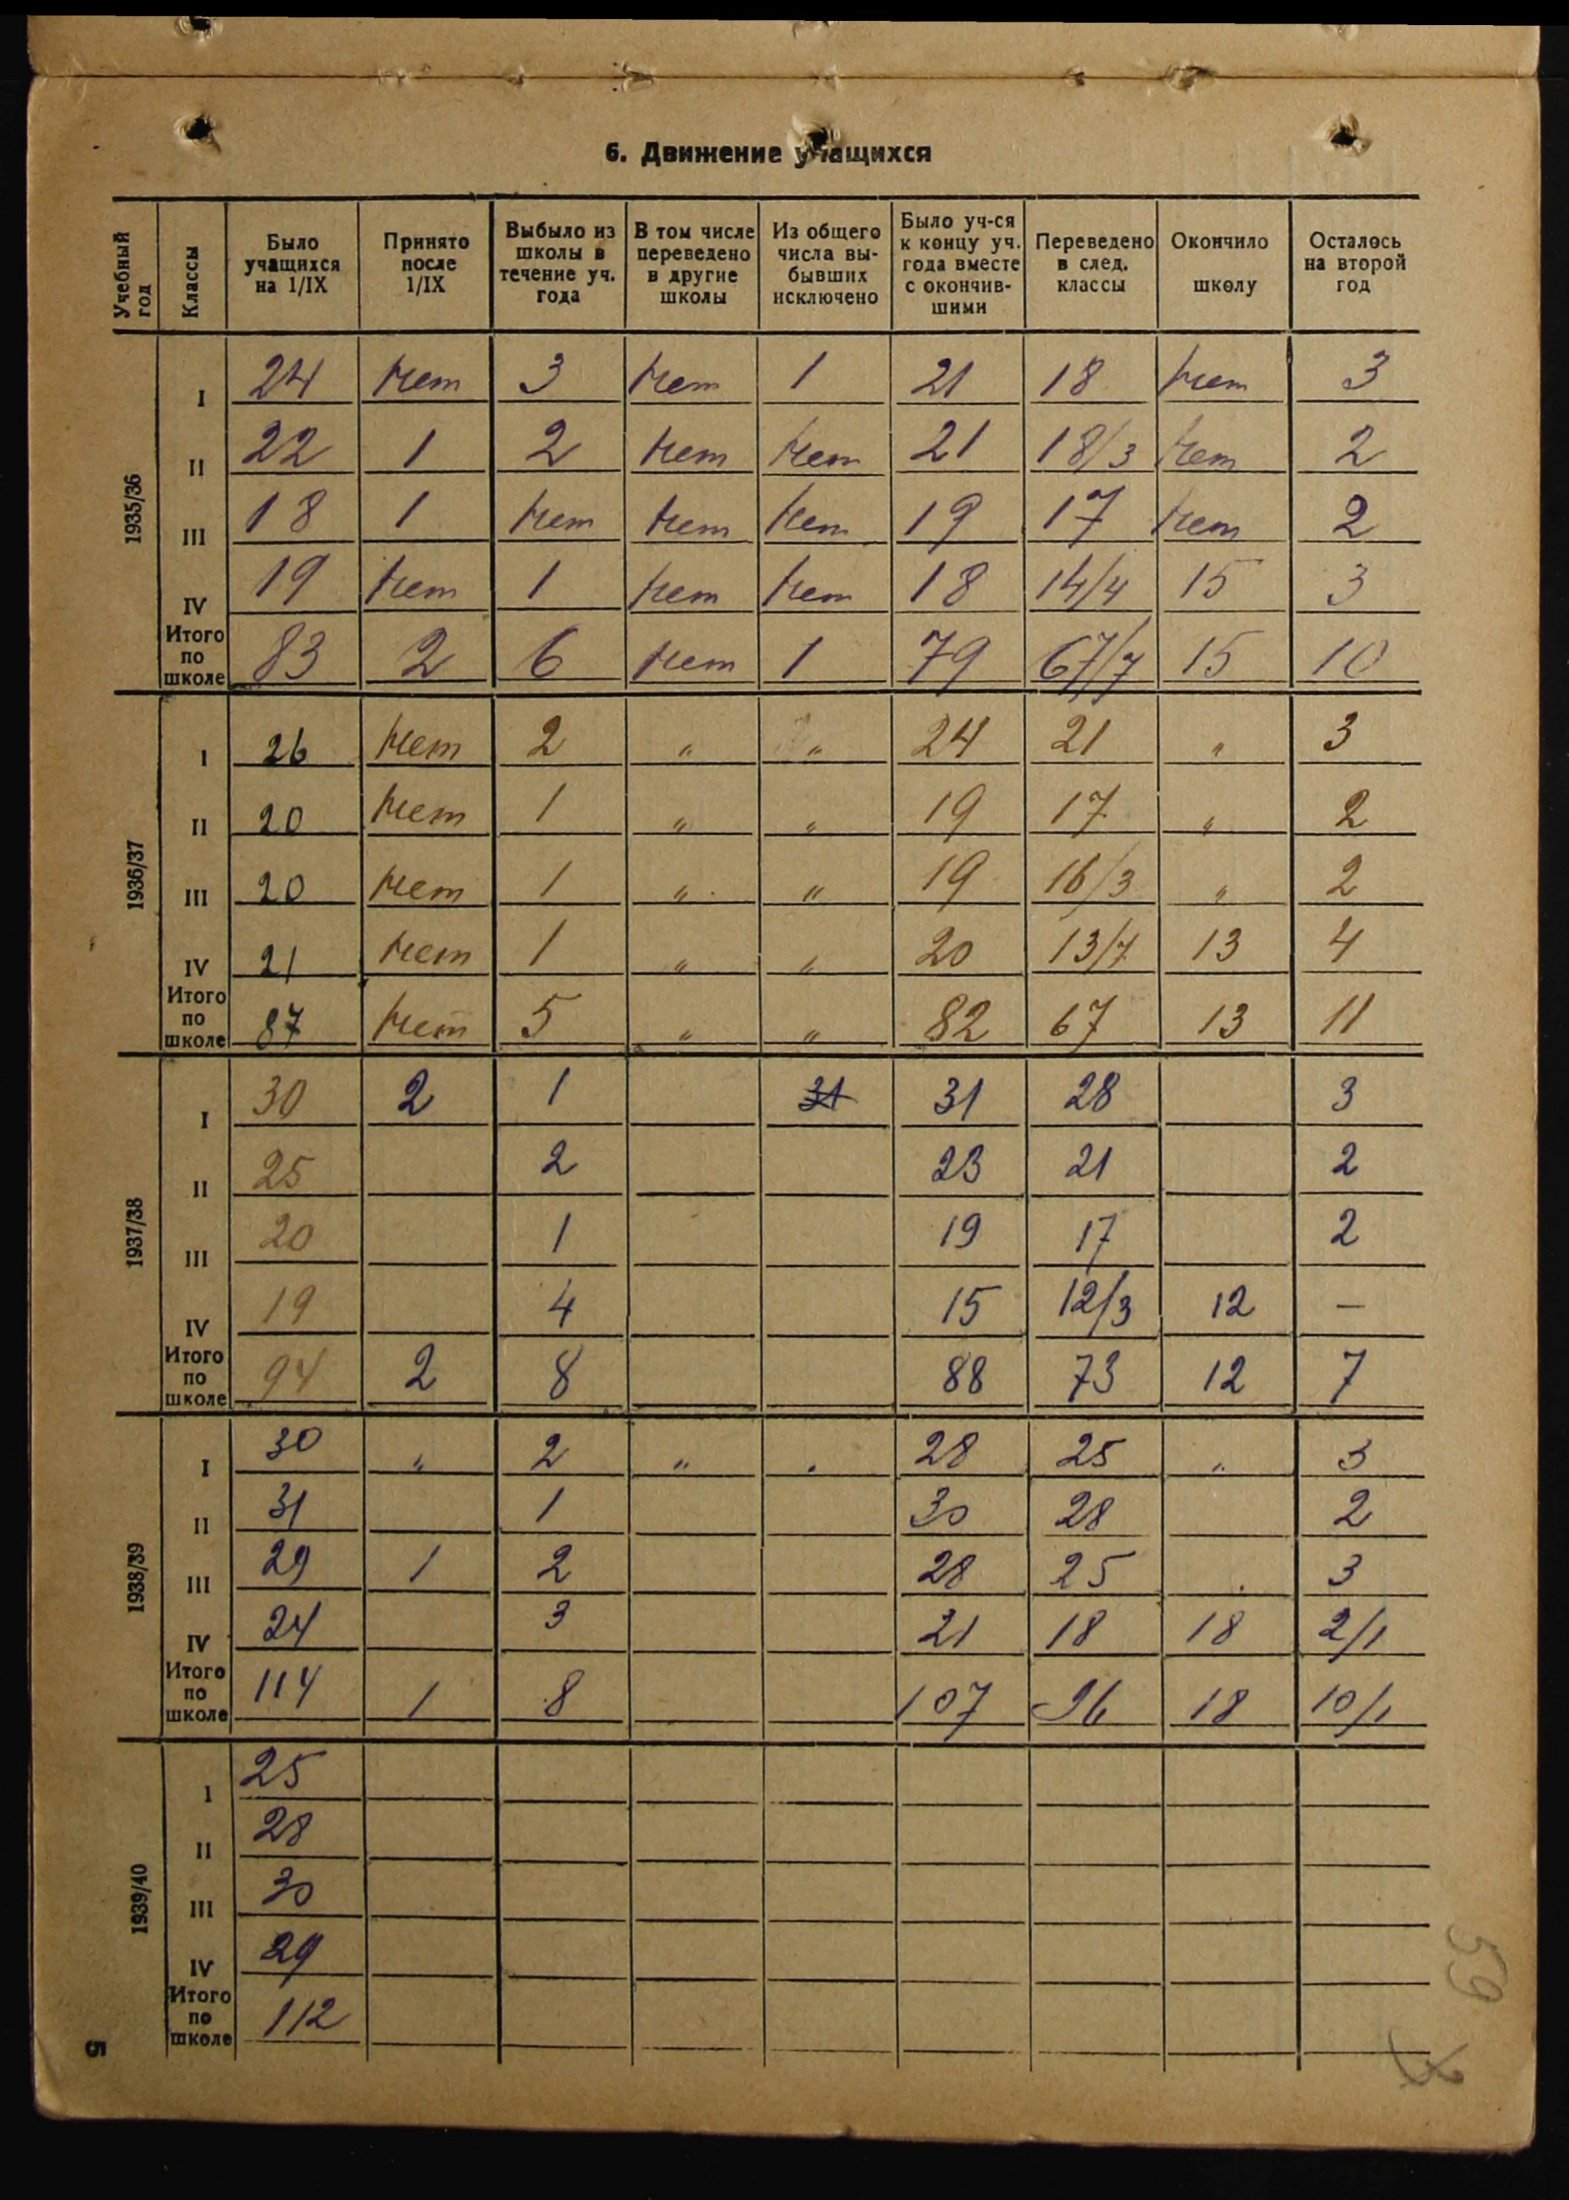 6. Движение учащихся
Учебный год | Классы | Было учащихся на 1/IX | Принято после 1/IX | Выбыло из школы в течение уч. года | В том числе переведено в другие школы | Из общего числа выбывших исключено | Было уч-ся к концу уч. года вместе с окончившими | Переведено в след. классы | Окончило школу | Осталось на второй год
1935/36
I | 24 | нет | 3 | нет | 1 | 21 | 18 | нет | 3
II | 22 | 1 | 2 | нет | нет | 21 | 18/3 | нет | 2
III | 18 | 1 | нет | нет | нет | 19 | 17 | нет | 2
IV | 19 | нет | 1 | нет | нет | 18 | 14/4 | 15 | 3
Итого по школе | 83 | 2 | 6 | нет | 1 | 79 | 67/7 | 15 | 10
1936/37
I | 26 | нет | 2 | " | " | 24 | 21 | " | 3
II | 20 | нет | 1 | " | " | 19 | 17 | " | 2
III | 20 | нет | 1 | " | " | 19 | 16/3 | " | 2
IV | 21 | нет | 1 | " | " | 20 | 13/7 | 13 | 4
Итого по школе | 87 | нет | 5 | " | " | 82 | 67 | 13 | 11
1937/38
I | 30 | 2 | 1 | | 31 | 31 | 28 | | 3
II | 25 | | 2 | | | 23 | 21 | | 2
III | 20 | | 1 | | | 19 | 17 | | 2
IV | 19 | | 4 | | | 15 | 12/3 | 12 | —
Итого по школе | 94 | 2 | 8 | | | 88 | 73 | 12 | 7
1938/39
I | 30 | " | 2 | " | . | 28 | 25 | " | 3
II | 31 | | 1 | | | 30 | 28 | | 2
III | 29 | 1 | 2 | | | 28 | 25 | . | 3
IV | 24 | | 3 | | | 21 | 18 | 18 | 2/1
Итого по школе | 114 | 1 | 8 | | | 107 | 96 | 18 | 10/1
1939/40
I | 25
II | 28
III | 30
IV | 29
Итого по школе | 112
5
59